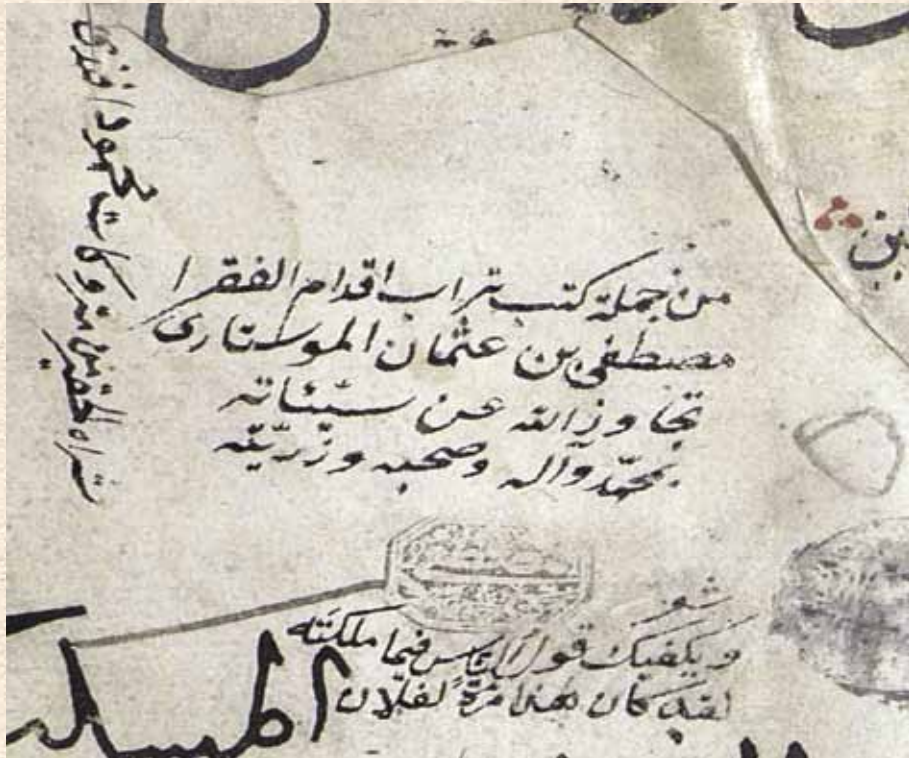 من جملة كتب تراب اقدام الفقرا
مصطفى بن عثمان الموستارى
تجاوز الله عن سيّئاته
بمحمّد وآله وصحبه وذرّيّته
شعر
ويكفيك قول الناس فيما ملكته
لقد كان هذا مرّة لفلان
شراه الحقير من متروكات محمود افندى
بن